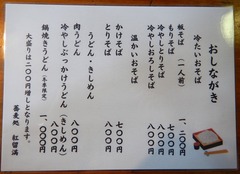 おしながき
冷たいおそば
板そば（一人前） 一、二〇〇円
もりそば 七〇〇円
冷やしとりそば 八〇〇円
冷やしおろしそば 八〇〇円
温かいおそば
かけそば 七〇〇円
とりそば 八〇〇円
うどん・きしめん
肉うどん 八〇〇円
冷やしぶっかけうどん（きしめん） 八〇〇円
鍋焼きうどん 一、〇〇〇円
大盛りは二〇〇円増しとなります。
蕎麦処 紅留満